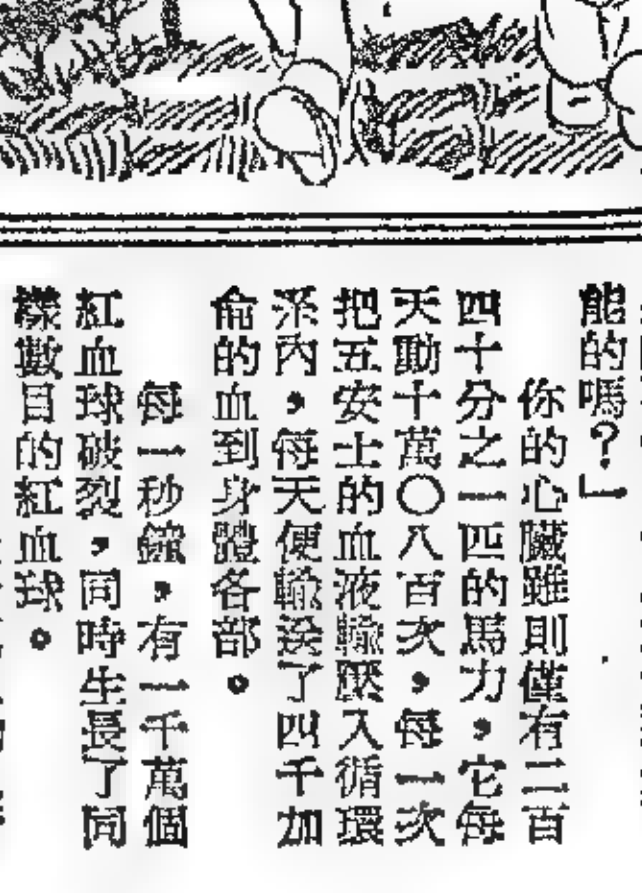 能的嗎？」
你的心臟雖則僅有二百
四十分之一匹的馬力，它每
天動十萬〇八百次，每一次
把五安士的血液輸壓入循環
系內，每天便輸送了四千加
侖的血到身體各部。
每一秒鐘，有一千萬個
紅血球破裂，同時生長了同
樣數目的紅血球。